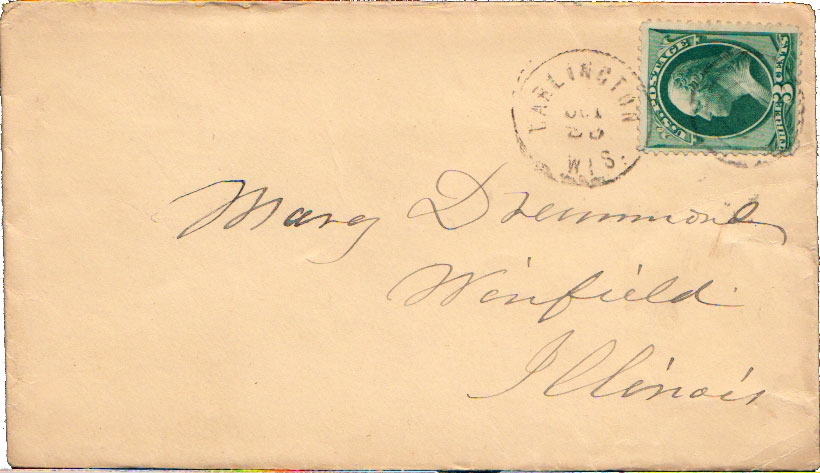 DARLINGTON
OCT
WIS.
U.S. POSTAGE
THREE 3 CENTS
Mary Drummond
Winfield
Illinois